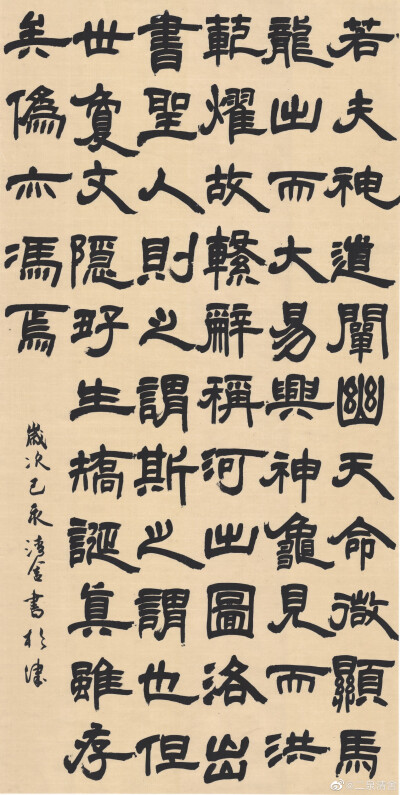 若夫神道闡幽天命微顯馬
龍出而大易興神龜見而洪
範燿故繫辭稱河出圖洛出
書聖人則之謂斯之謂也但
世敻文隱好生矯誕真雖存
矣偽亦馮焉
歲次己亥書於津